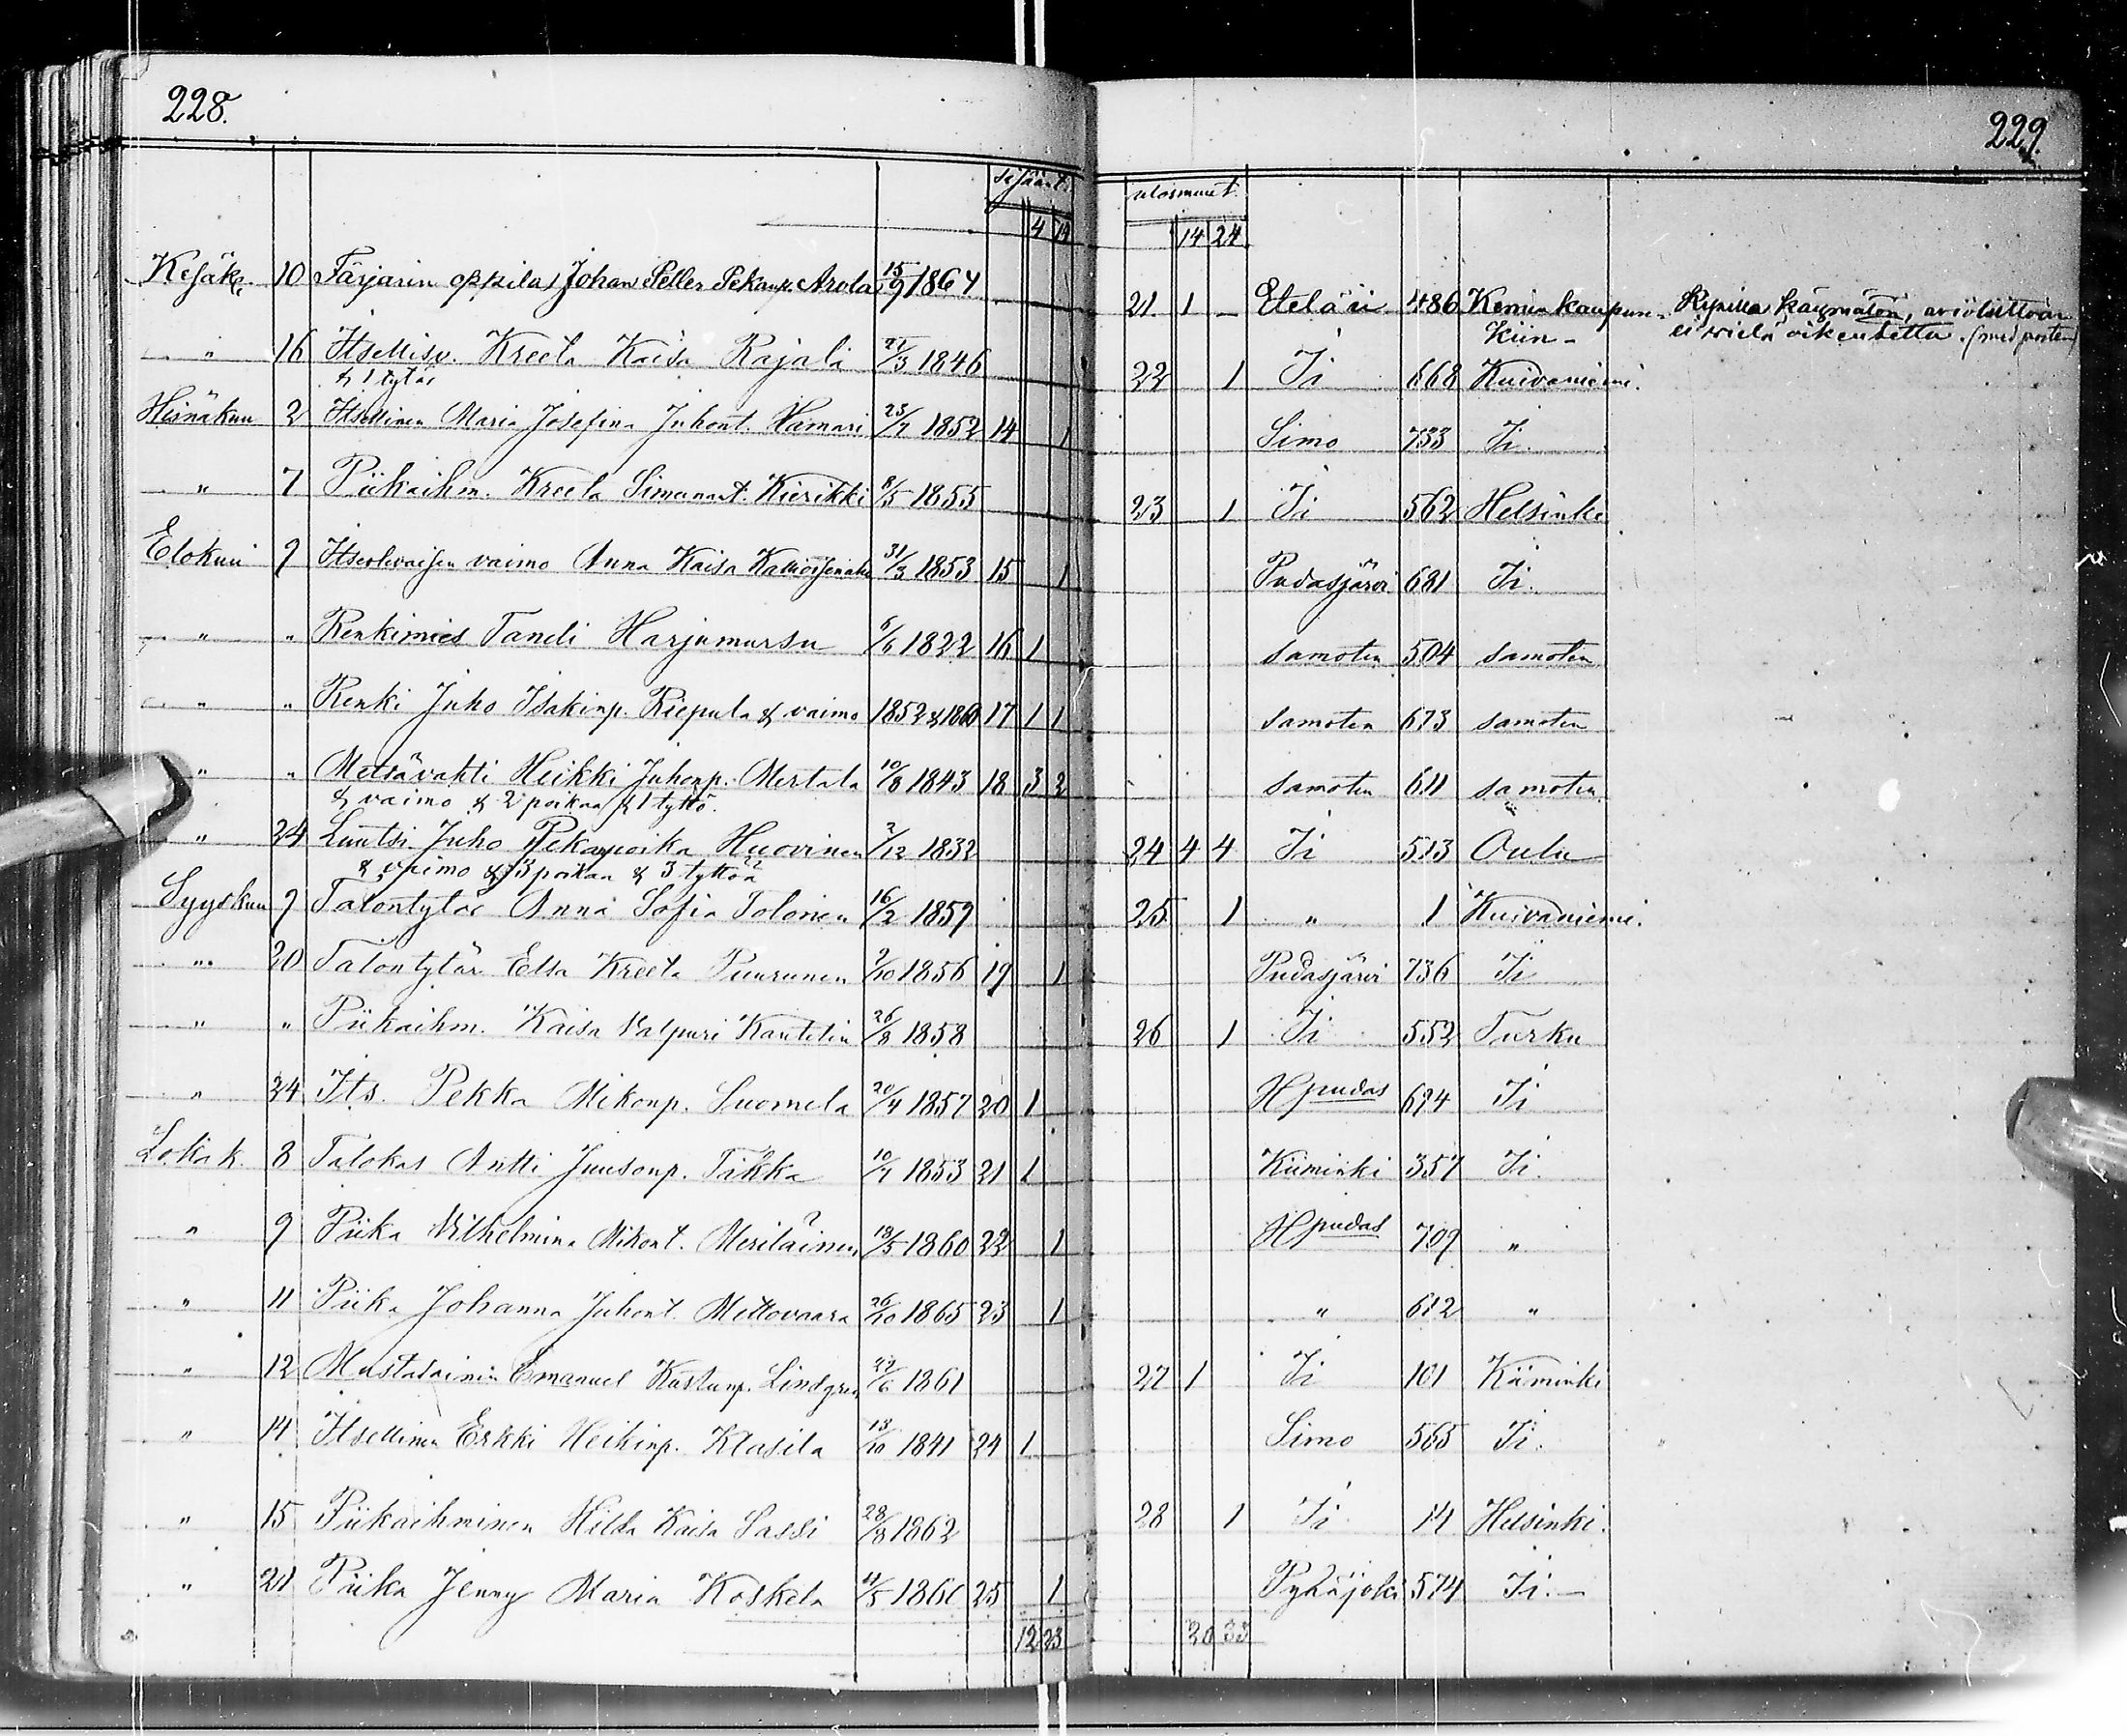 228.
sisäänt.
4 14
Kesäk. 10 Färjarin oppilas Johan Peller Pekanp. Arola 15/9 1864
" 16 Itsellisv. Kreeta Kaisa Rajali 21/3 1846
& 1 tytär
Heinäkuu 2 Itsellinen Maria Josefina Juhont. Hamari 23/7 1852 14 1
" 7 Piikaihm. Kreeta Simunant. Kierikki 8/5 1855
Elokuu 9 Itsenlevaisen vaimo Anna Kaisa 31/3 1853 15 1
" " Renkimies Taneli Harjumursu 6/6 1822 16 1
" " Renki Juho Isakinp. Riepula & vaimo 1852 & 1860 17 1 1
" " Metsävahti Heikki Juhonp. Mertala 10/8 1843 18 3 2
& vaimo & 2 poikaa & 1 tyttö.
" 24 Luutsi Juho Pekanpoika Huovinen 2/12 1832
& vaimo & 3 poikaa & 3 tyttöä
Syyskuu 9 Talontytär Anna Sofia Tolonen 16/2 1859
" 20 Talontytär Elsa Kreeta Puurunen 9/10 1856 19 1
" " Piikaihm. Kaisa Valpuri Kantolin 26/8 1858
" 24 Its. Pekka Mikonp. Suomela 20/4 1857 20 1
Lokak. 8 Talokas Antti Juusonp. Tikka 10/7 1853 21 1
" 9 Piika Vilhelmina Mikont. Meriläinen 18/5 1860 22 1
" 11 Piika Johanna Juhont. Mettovaara 26/10 1865 23 1
" 12 Mustalainen Emanuel Kustanp. Lindgren 27/6 1861
" 14 Itsellinen Erkki Heikinp. Klasila 18/10 1841 24 1
" 15 Piikaihminen Hilda Kaisa Sassi 28/8 1862
" 21 Piika Jenny Maria Koskela 11/5 1860 25 1
12 23
229.
ulosmuut.
14 24
21 1 Etelä ii 486 Kemin kaupun-
Kiin - Ripillä käymätön, avioliittoon
ei vielä oikeutettu. (med posten)
22 1 Ii 668 Kuivaniemi.
Simo 733 Ii.
23 1 Ii 562 Helsinki
Pudasjärvi 681 Ii.
samoten 504 samoten
samoten 673 samoten
samoten 611 samoten
24 4 4 Ii 513 Oulu
25 1 " 1 Kuivaniemi.
Pudasjärvi 736 Ii
26 1 Ii 552 Turku
Hpudas 694 Ii
Kiiminki 357 Ii.
Hpudas 709 "
" 612 "
27 1 Ii 101 Kiiminki
Simo 565 Ii.
28 1 Ii 14 Helsinki.
Pyhäjoki 574 Ii. -
20 33